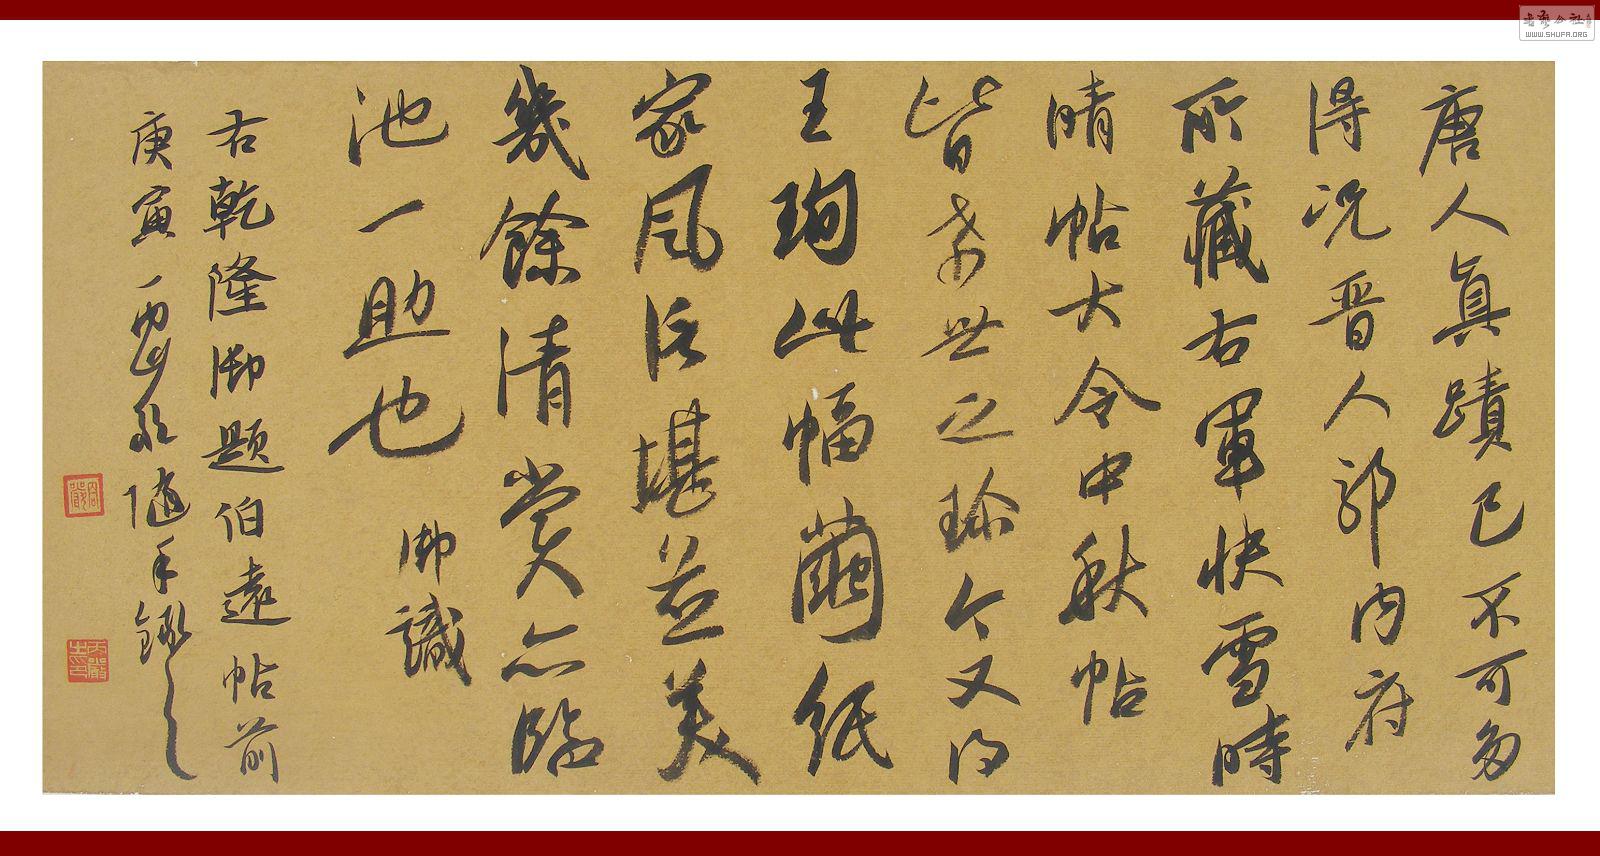 唐人真蹟已不可多
得况晋人耶内府
所藏右軍快雪時
晴帖大令中秋帖
皆希世之珍今又得
王珣此幅繭紙
家風信堪並美
幾餘清賞亦臨
池一助也
御識
右乾隆御題伯遠帖前
庚寅 隨手錄之
WWW.SHUFA.ORG